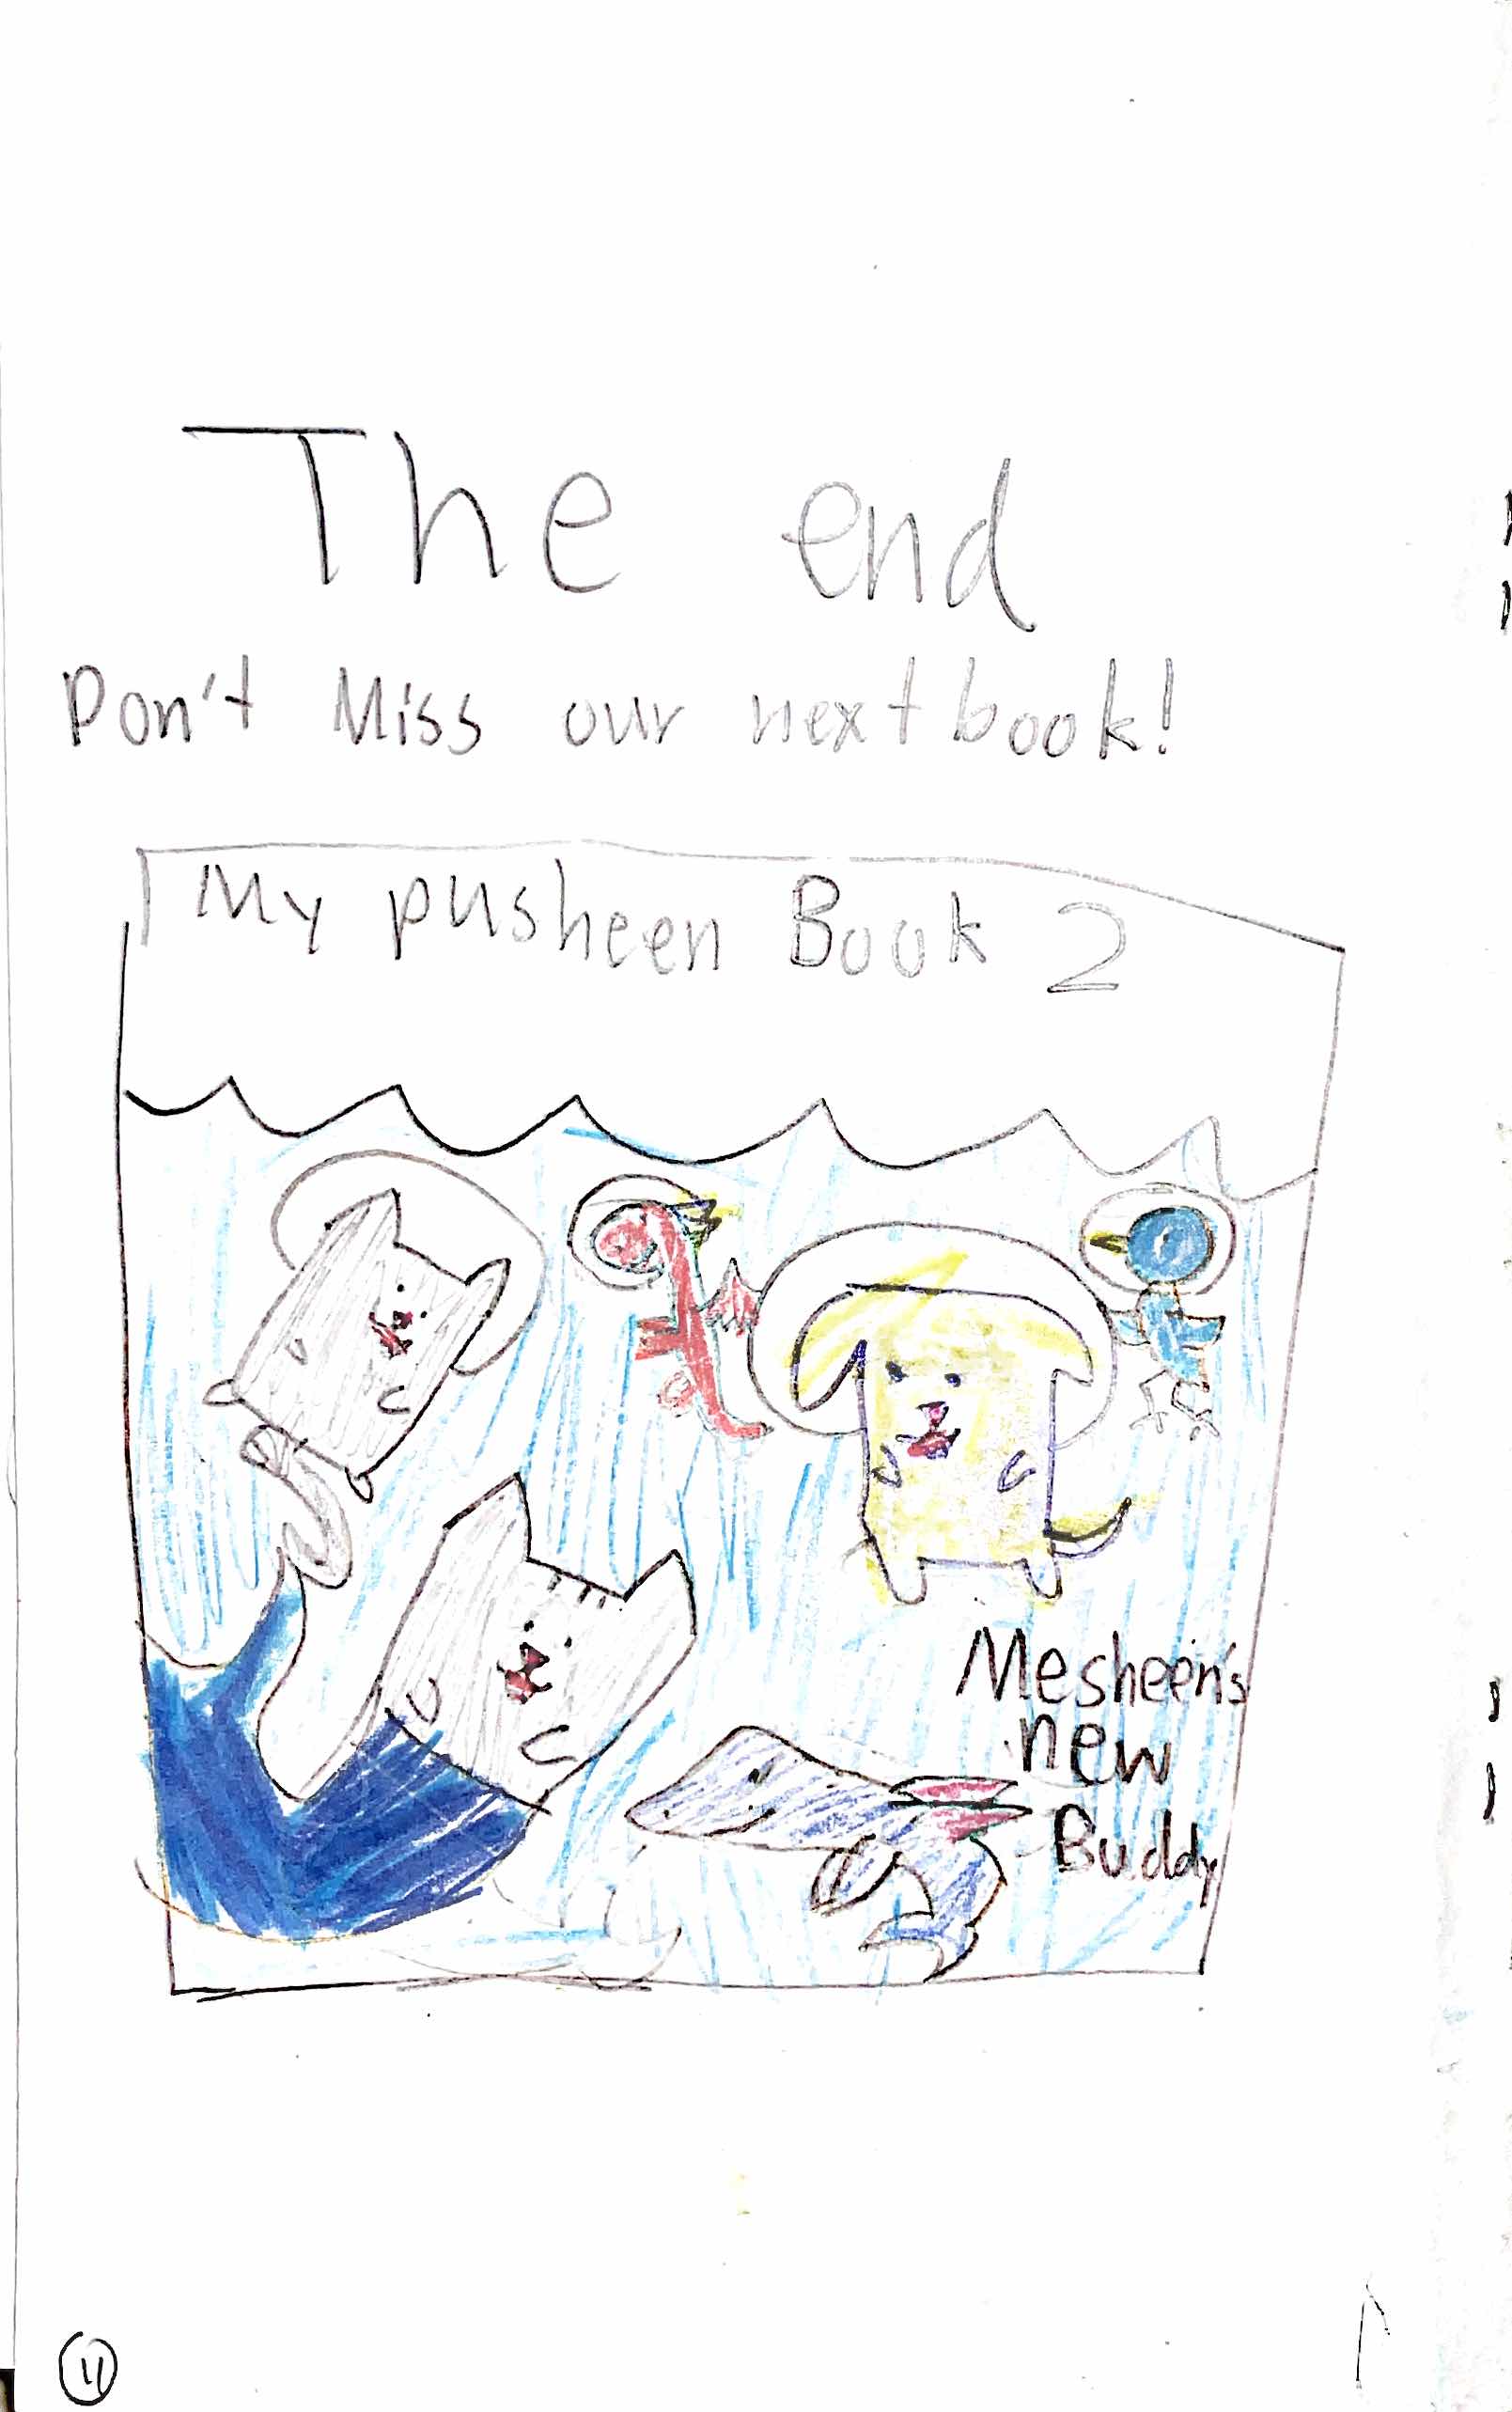 The end
Don't Miss our next book!
My pusheen Book 2
Mesheen's
new
Buddy
11